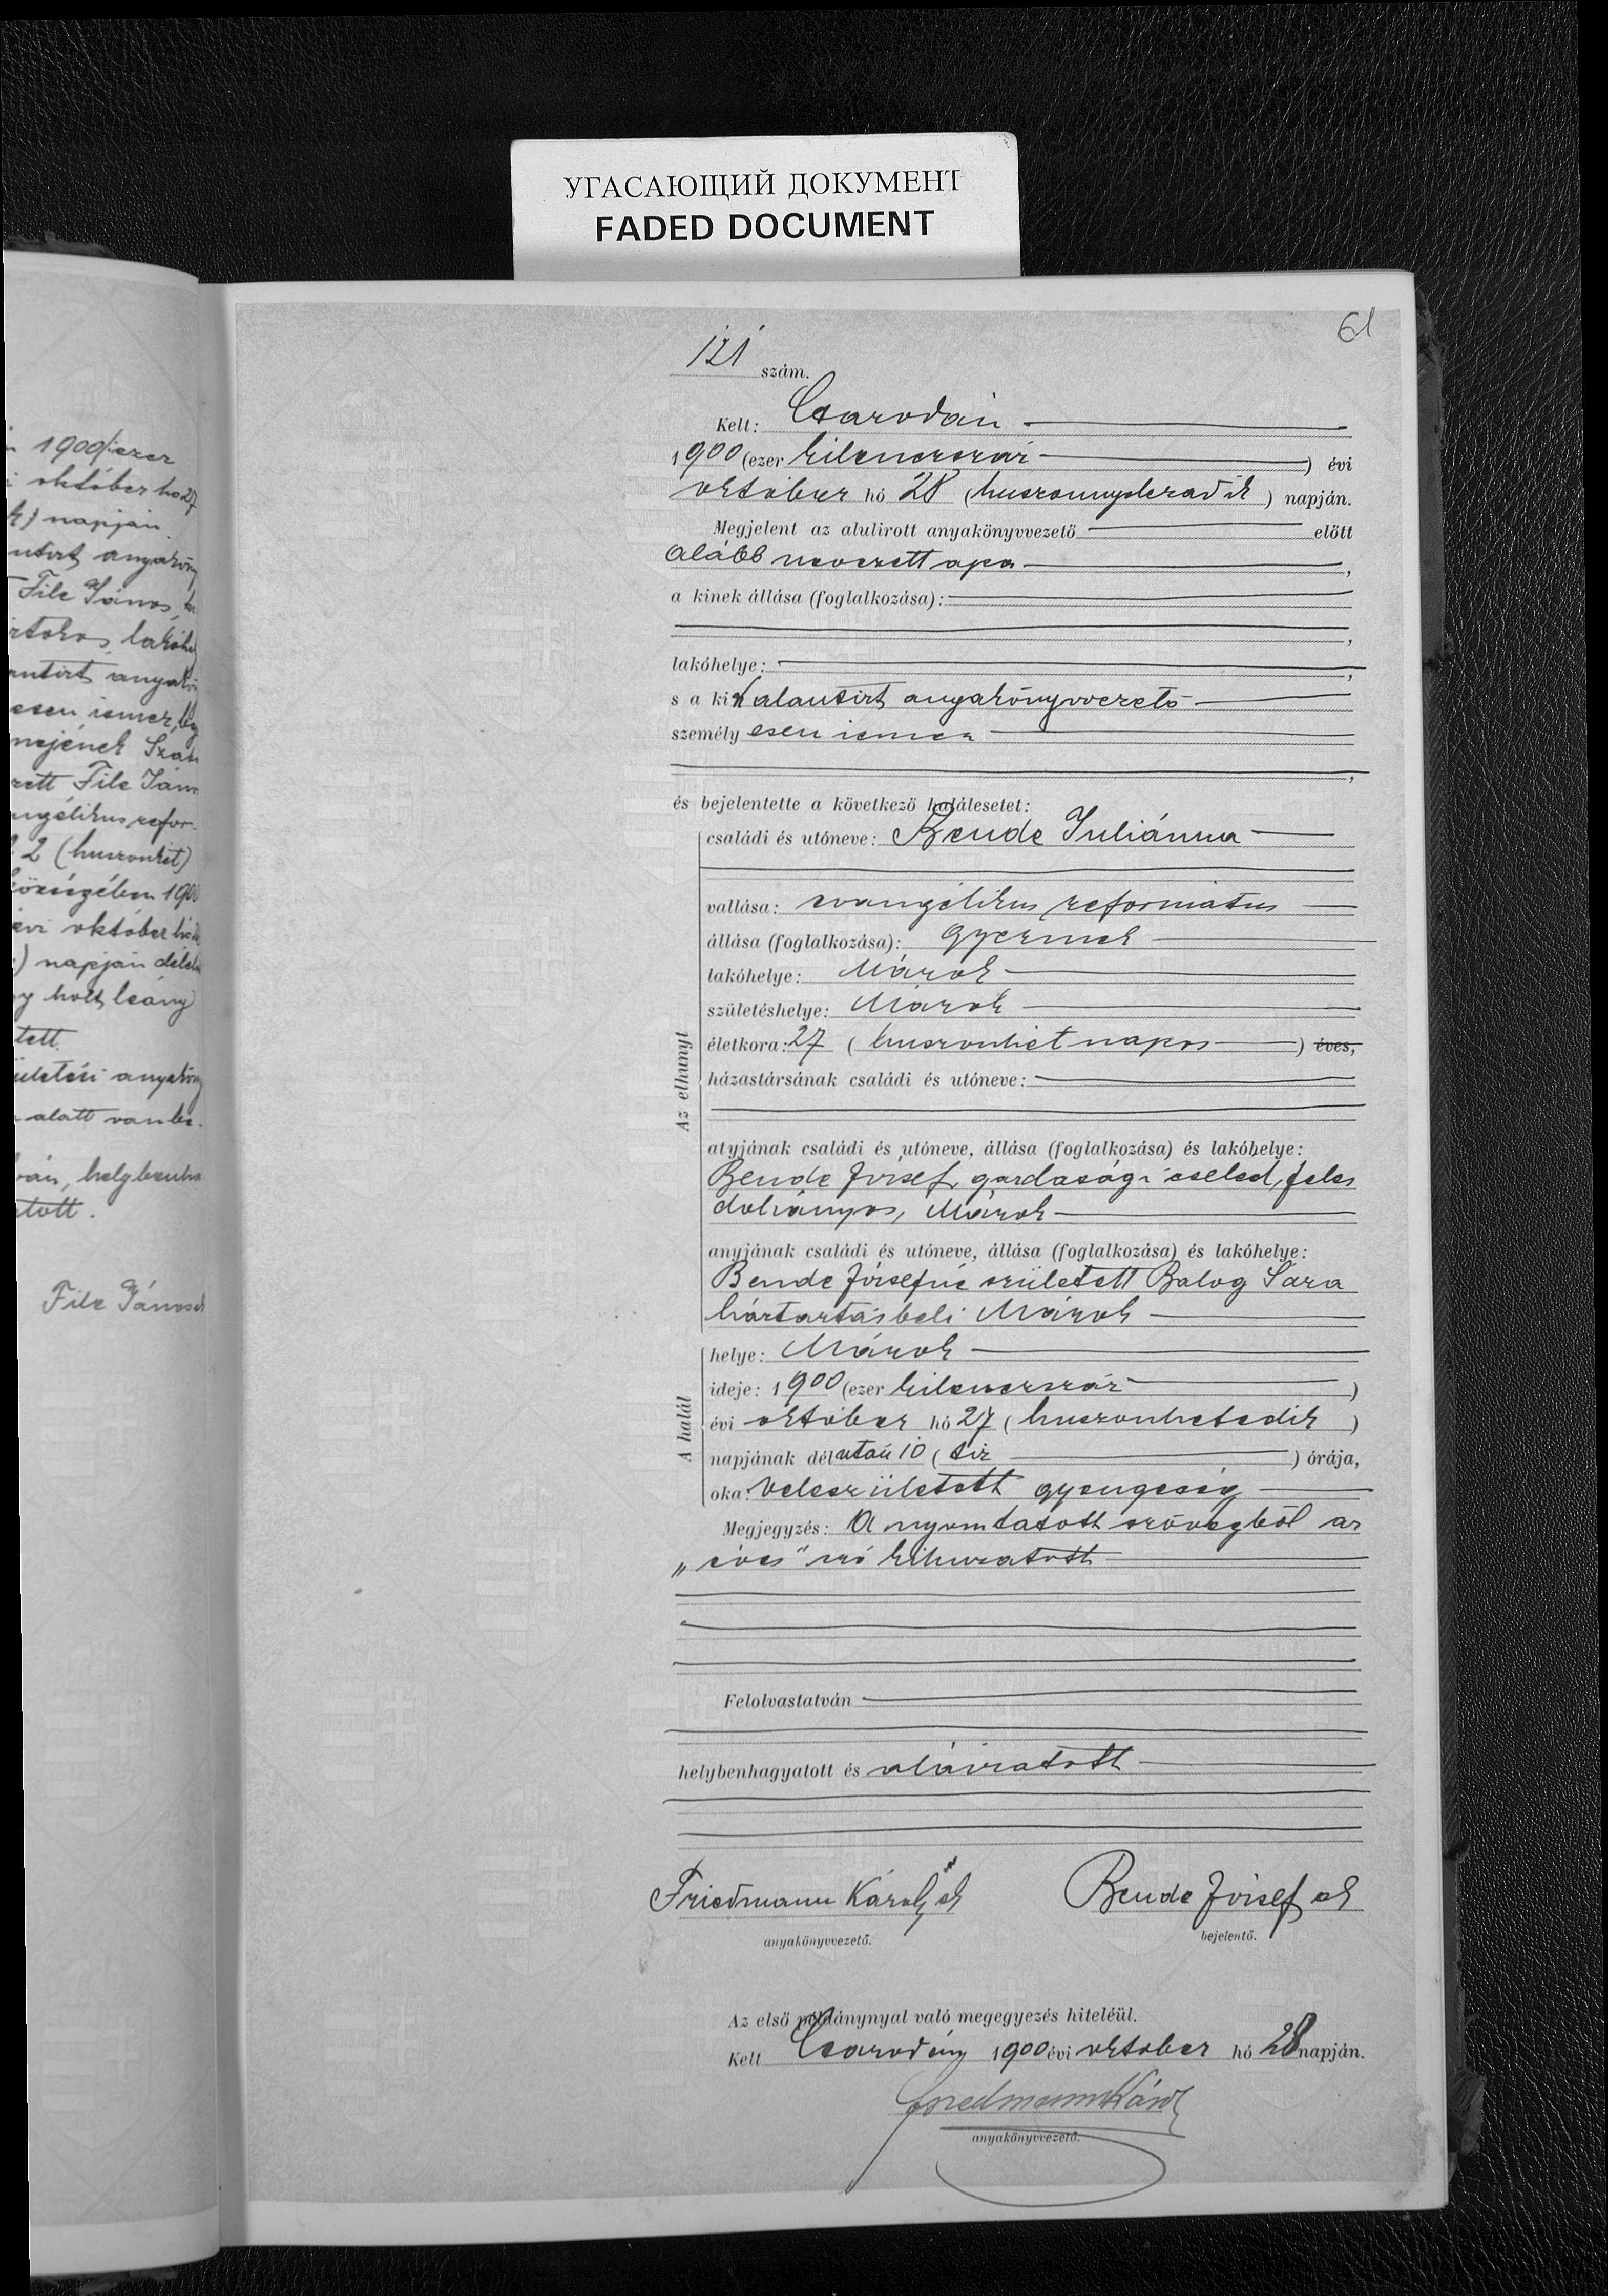 УГАСАЮЩИЙ ДОКУМЕНТ
FADED DOCUMENT
61
n 1900/:ezer
október hó 27
k) napján
File János,
lakóhe
esen ismer,
nejének
zett File Ján
2 (huszonkét)
községében 1900
évi október hó
) napján déle
gy holt leány
tett.
alatt van be.
ván, helybenha
atott.
File János sk
121 szám.
Kelt: Csarodán
1900 (ezer kilencszáz ) évi
október hó 28 (huszonnyolczadik ) napján.
Megjelent az alulirott anyakönyvvezető előtt
alább nevezett apa ,
a kinek állása (foglalkozása):
,
lakóhelye: ,
s a kit alantirt anyakönyvvezető
személy esen ismer
,
és bejelentette a következő halálesetet:
Az elhunyt
családi és utóneve: Bende Juliánna
vallása: evangélikus református
állása (foglalkozása): gyermek
lakóhelye: Márok
születéshelye: Márok
életkora: 27 ( huszonhét napos ) éves,
házastársának családi és utóneve:
atyjának családi és utóneve, állása (foglalkozása) és lakóhelye:
Bende József, gazdasági cseléd, feles
dohányos, Márok
anyjának családi és utóneve, állása (foglalkozása) és lakóhelye:
Bende Józsefné született Balog Sára
háztartásbeli Márok
A halál
helye: Márok
ideje: 1900 (ezer kilencszáz )
évi október hó 27 ( huszonhetedik )
napjának délután 10 ( tíz ) órája,
oka: veleszületett gyengeség
Megjegyzés: A nyomtatott szövegből az
„éves" szó kihuzatott
Felolvastatván
helybenhagyatott és aláiratott
Friedmann Károly sk
anyakönyvvezető.
Bende József sk
bejelentő.
Az első példánynyal való megegyezés hiteléül.
Kelt Csarodán 1900 évi október hó 28 napján.
Friedmann Károly
anyakönyvvezető.